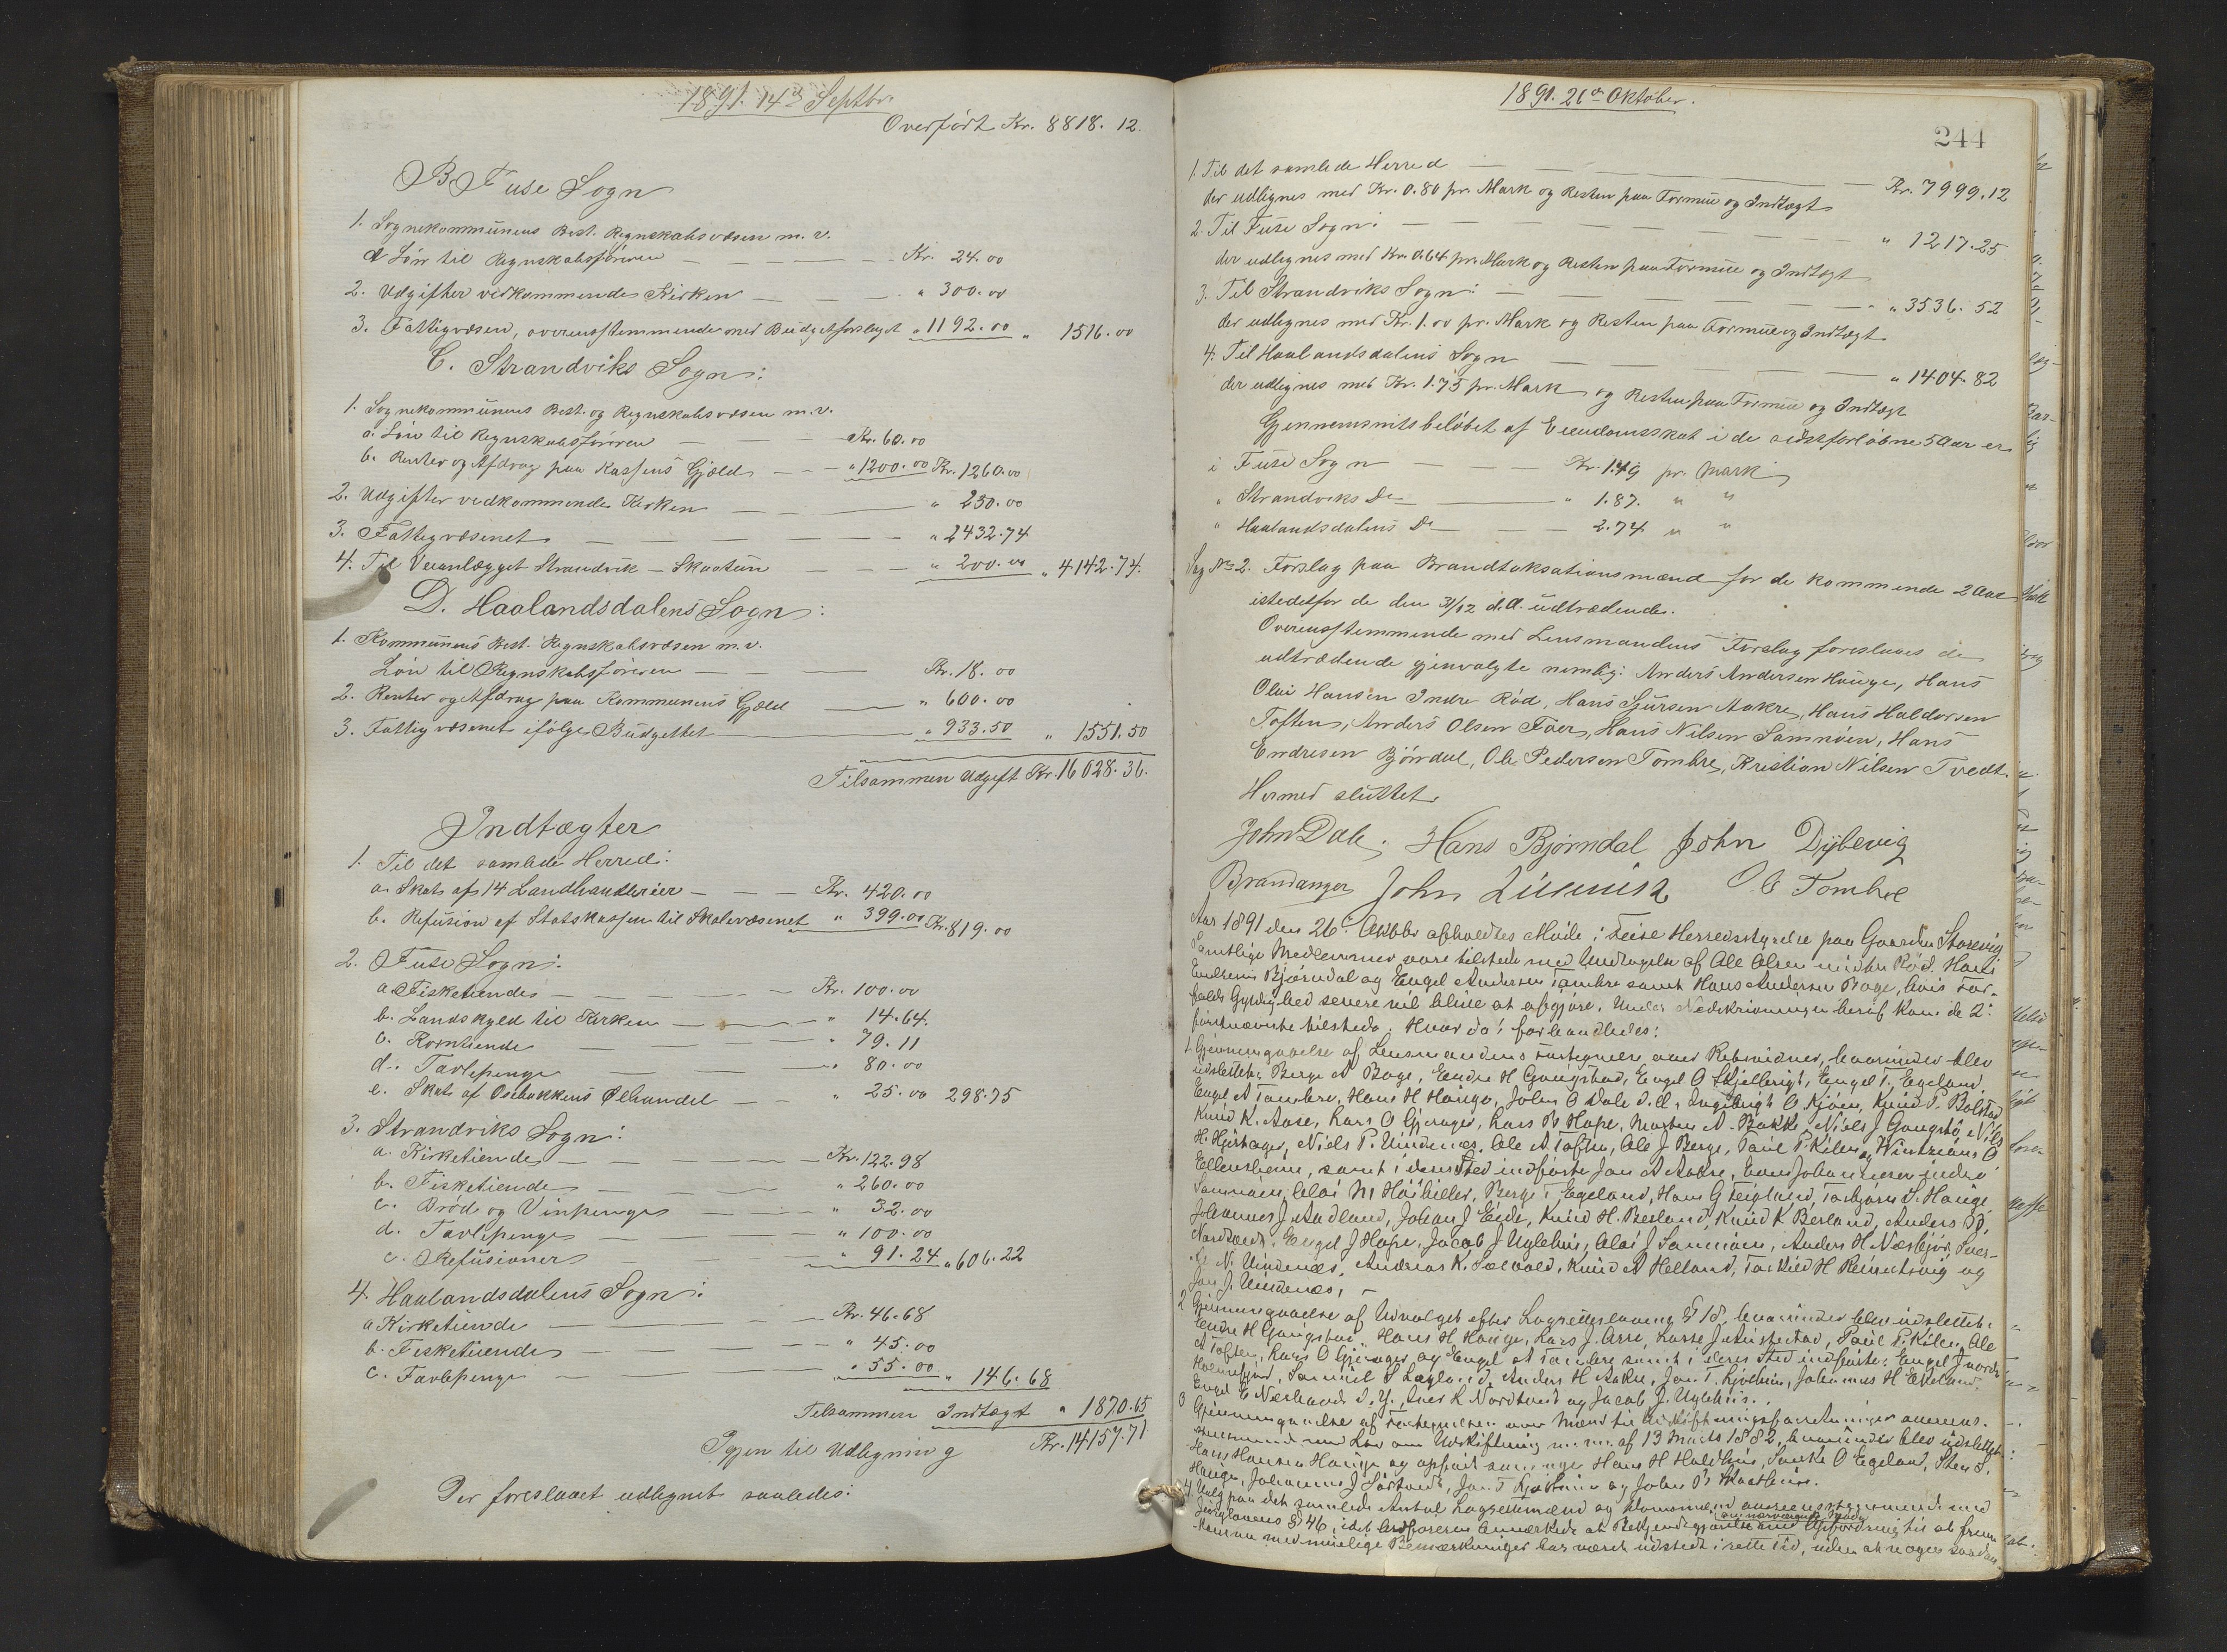 1891. 14de Septbr.
Overført Kr. 8818. 12.
B Fuse Sogn
1. Sognekommunens Best. Regnskabsvæsen m. v.
a Løn til Regnskabsføreren — Kr. 24.00
2. Udgifter vedkommende Kirken — " 300.00
3. Fattigvæsen, overensstemmende med Budgetforslaget " 1192.00 " 1516.00
C. Strandviks Sogn:
1. Sognekommunens Best. og Regnskabsvæsen m.v.
a. Løn til Regnskabsføreren — Kr. 60.00
b. Renter og Afdrag paa Kassens Gjæld — " 1200.00 Kr. 1260.00
2. Udgifter vedkommende Kirken — " 250.00
3. Fattigvæsenet — " 2432.74
4. Til Veianlægget Strandvik – Skaatun — " 200.00 " 4142.74.
D. Haalandsdalens Sogn:
1. Kommunens Best. Regnskabsvæsen m.v.
Løn til Regnskabsføreren — Kr. 18.00
2. Renter og Afdrag paa Kommunens Gjæld — " 600.00
3. Fattigvæsenet ifølge Budgettet — " 933.50 " 1551.50
Tilsammen Udgift Kr. 16028.36.
Indtægter
1. Til det samlede Herred:
a. Skat af 14 Landhandlerier — Kr. 420.00
b. Refusion af Statskassen til Skolevæsenet " 399.00 Kr. 819.00
2. Fuse Sogn:
a. Fisketiende — Kr. 100.00
b. Landskyld til Kirken — " 14.64.
c. Korntiende — " 79.11
d. Tavlepenge — " 80.00
e. Skat af Osebakkens Ølhandel — " 25.00 298.75
3. Strandviks Sogn:
a. Kirketiende — Kr. 122.98
b. Fisketiende — " 260.00
c. Brød og Vinpenge — " 32.00
d. Tavlepenge — " 100.00
e. Refusioner — " 91.24 " 606.22
4. Haalandsdalens Sogn:
a Kirketiende — Kr. 46.68
b. Fisketiende — " 45.00
c. Tavlepenge — " 55.00 " 146.68
Tilsammen Indtægt " 1870.65
Igjen til Udligning Kr. 14157.71
Der foreslaaet udlignet saaledes:
1891. 26de Oktober.
244
1. Til det samlede Herred — Kr. 7999.12
der udlignes med Kr. 0.80 pr. Mark og Resten paa Formue og Indtægt
2. Til Fuse Sogn: — " 1217.25
der udlignes med Kr. 0.64 pr. Mark og Resten paa Formue og Indtægt
3. Til Strandviks Sogn: — " 3536.52
der udlignes med Kr. 1.00 pr. Mark og Resten paa Formue og Indtægt
4. Til Haalandsdalens Sogn — " 1404.82
der udlignes med Kr. 1.75 pr. Mark og Resten paa Formue og Indtægt
Gjennemsnitsbeløbet af Eiendomsskat i de sidstforløbne 5 Aar er
i Fuse Sogn — Kr. 1.49 pr. Mark
" Strandviks Do — " 1.87. " "
" Haalandsdalens Do — 2.74 " "
Sag No 2. Forslag paa Brandtaksationsmænd for de kommende 2 Aar
istedetfor de den 31/12 d.A. udtrædende.
Overensstemmende med Lensmandens Forslag foreslaaes de
udtrædende gjenvalgte nemlig: Anders Andersen Hauge, Hans
Olai Hansen Indre Rød, Hans Sjursen Aakre, Hans Haldorsen
Toften, Anders Olsen Tøer, Hans Nilsen Samnøen, Hans
Endresen Bjørndal, Ole Pedersen Tombre, Kristian Nilsen Tvedt.
Hermed sluttet
John Dale. Hans Bjørndal John Dybevig
Brandanger John Ole Tombre
Aar 1891 den 26. Oktbr afholdtes Møde i Fuse Herredsstyrelse paa Gaarden Storevig
Samtlige Medlemmer vare tilstede med Undtagelse af Ole Olsen nedre Rød. Hans
Endresen Bjørndal og Engel Andersen Tombre samt Hans Andersen Boge, hvis For-
falds Gyldighed senere vil blive at afgjøre. Under Nedskrivningen heraf kom de 2
førstnævnte tilstede. Hvor da forhandledes:
1. Gjennemgaaelse af Lensmandens Fortegnelse over Retsvidner, hvorunder blev
udslettet: Berge A Boge, Endre H Gaugstad, Engel O Skjelbreigt, Engel T. Egeland,
Engel A Tombre, Hans H Hauge, John O Dale d. æ., Ingebrigt O Kjøen, Knud P. Bolstad
Knud K. Aase, Lars O Gjerager, Lars N Hope, Morten A. Bakke, Niels J Gaugstø, Nils
H. Hjertager, Niels P. Vindenes, Ole A Toften, Ole J Berge, Paul P Kilen og O
samt i deres Sted indførte Jon A Aakre, Hans Johannesen indre
Samnøen, Olai M Berge T Egeland, Hans G Teigland, Torbjørn S. Hauge
Johannes J Aadland, Johan J Eide, Knud H. Berland, Knud K Berland, Anders
Nordtvedt. Engel J Hope, Jacob J Uglehus, Olai J Samnøen, Anders H Sver-
N. Vindenes, Andreas K. Sævold, Knud A Helland, Torkild H og
Jon J. Vindenes. —
2 Gjennemgaaelse af Udvalget efter Lagretteslovens § 18, hvorunder blev udslettet:
Endre H Gaugstad, Hans H Hauge, Lars J. Lasse J Paul P. Kilen, Ole
A Toften, Lars O Gjerager og Engel A Tombre samt i deres Sted indførte: Engel J nordre
Holmefjord, Samuel S Anders H Aakre, Jon T. Johannes H Ekeland,
Engel E d. y., L Nordtvedt og Jacob J. Uglehus.
3 Gjennemgaaelse af Fortegnelsen over Mænd til Udskiftningsforretninger overens-
stemmende med Lov om Udskiftning m. m. af 13 Marts 1882, hvorunder blev udslettet
Hans Hansen Hauge og opført som nye Hans H O Egeland, Sten S.
Hauge, Johannes J Sørtvedt, Jon T og John
4. Valg paa det samlede Antal Lagrettemænd og Domsmænd overensstemmende med
Jurylovens § 46, idet Ordføreren bemærkede at Bekjendtgjørelse om nærværende Møde med Opfordring til at frem-
komme med mulige Bemærkninger har været udstedt i rette Tid, uden at nogen saadan